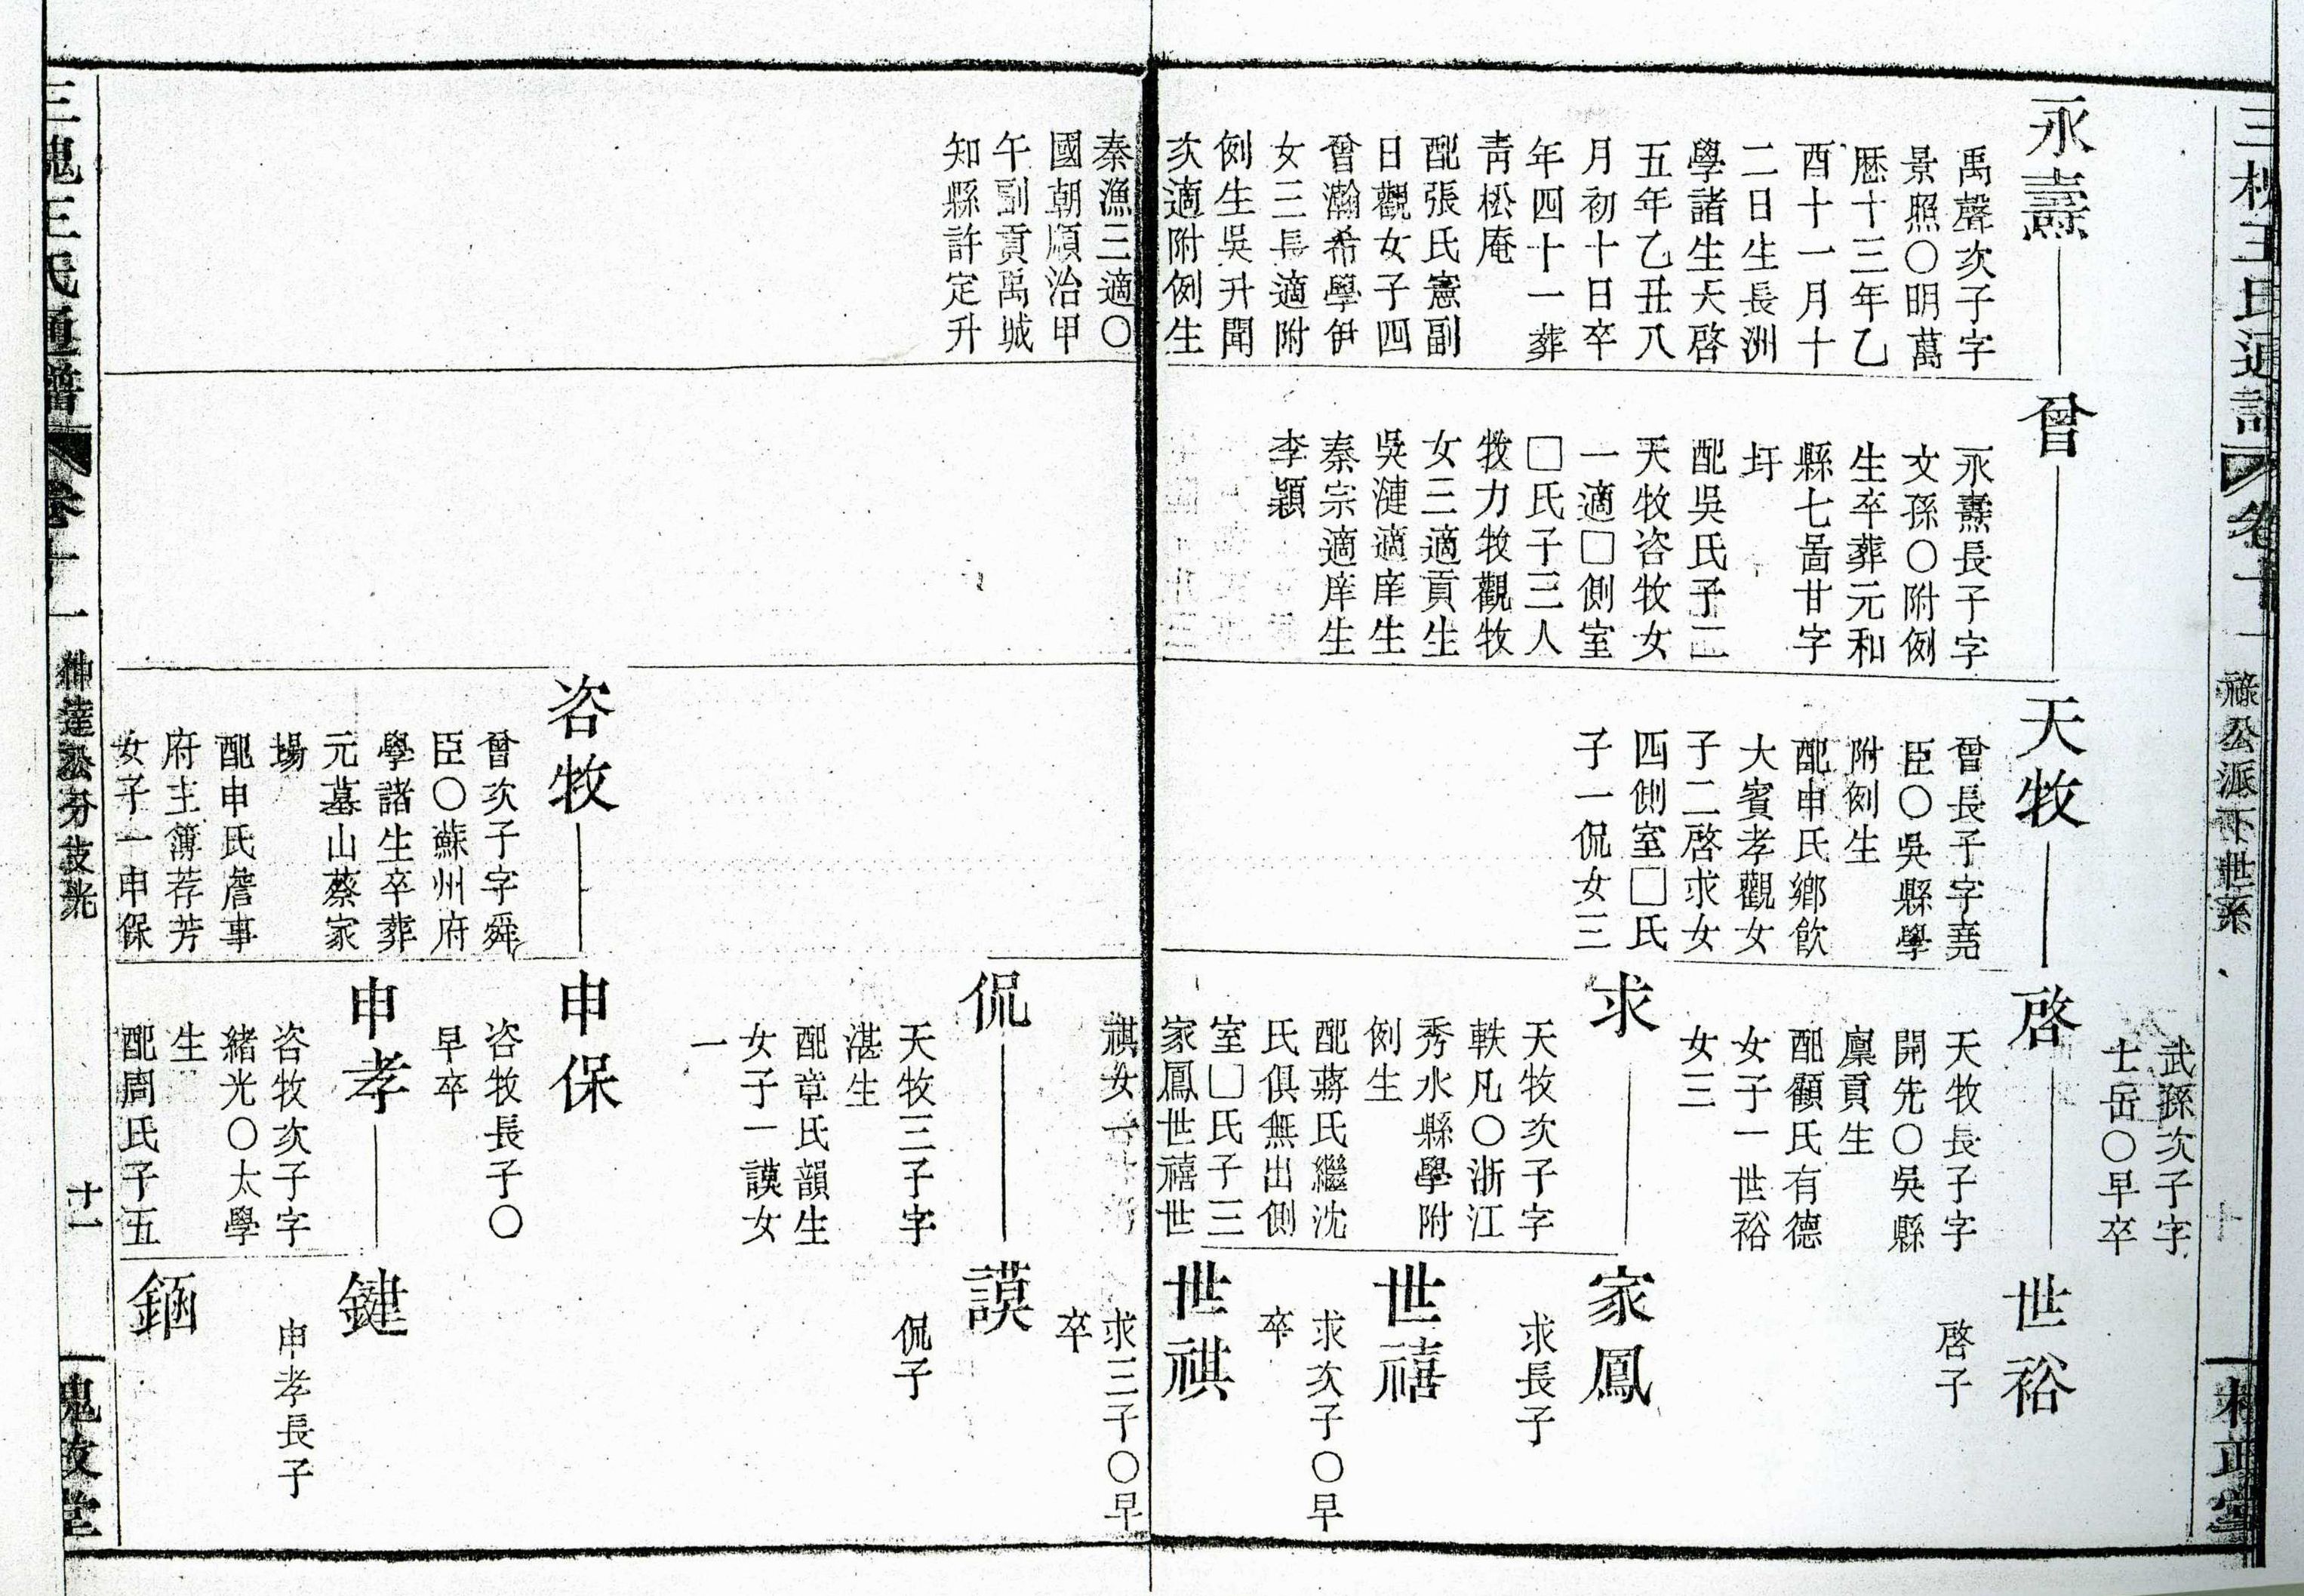 三槐王氏通譜
卷十一
祿公派下世系
十
槐政堂
武孫次子字
士岳〇早卒
永燾
禹聲次子字
景照〇明萬
厯十三年乙
酉十一月十
二日生長洲
學諸生天啓
五年乙丑八
月初十日卒
年四十一葬
靑松庵
配張氏憲副
日觀女子四
曾瀚希學伊
女三長適附
例生吳升聞
次適附例生
秦漁三適〇
國朝順治甲
午副貢禹城
知縣許定升
曾
永燾長子字
文孫〇附例
生卒葬元和
縣七啚甘字
圩
配吳氏子二
天牧咨牧女
一適□側室
□氏子三人
牧力牧觀牧
女三適貢生
吳漣適庠生
秦宗適庠生
李穎
天牧
曾長子字堯
臣〇吳縣學
附例生
配申氏鄉飮
大賓孝觀女
子二啓求女
四側室□氏
子一侃女三
啓
天牧長子字
開先〇吳縣
廩貢生
配顧氏有德
女子一世裕
女三
世裕
啓子
求
天牧次子字
軼凡〇浙江
秀水縣學附
例生
配蔣氏繼沈
氏俱無出側
室□氏子三
家鳳世禧世
祺女一
家鳳
求長子
世禧
求次子〇早
卒
世祺
求三子〇早
卒
侃
天牧三子字
湛生
配章氏韻生
女子一謨女
一
謨
侃子
咨牧
曾次子字舜
臣〇蘇州府
學諸生卒葬
元墓山蔡家
場
配申氏詹事
府主簿荐芳
女子一申保
申保
咨牧長子〇
早卒
申孝
咨牧次子字
緒光〇太學
生
配周氏子五
鍵
申孝長子
鎦
三槐王氏通譜
卷十一
紳達公分支光
十一
槐政堂